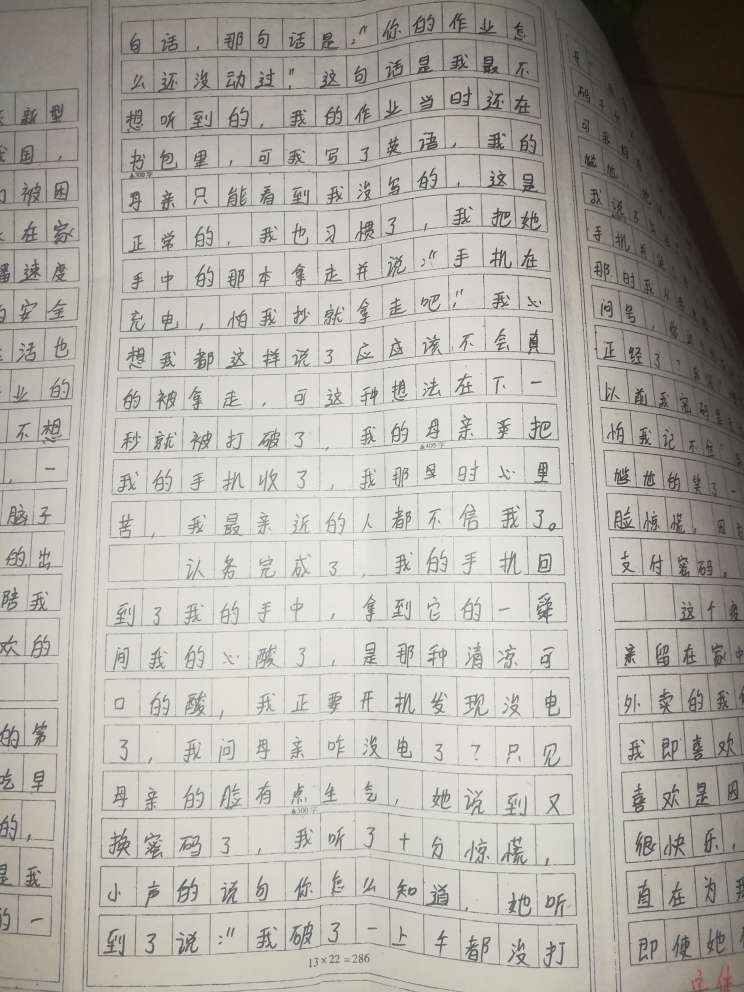 自话，那句话是："你的作业怎
么还没动过"。这句话是我最不
想听到的，我的作业当时还在
书包里，可我写了英语，我的
▲300字
母亲只能看到我没写的，这是
正常的，我也习惯了，我把她
手中的那本拿走并说："手机在
充电，怕我抄就拿走吧！"我心
想我都这样说了应应该不会真
的被拿走，可这种想法在下一
秒就被打破了，我的母亲把
▲400字
我的手机收了，我那时心里
苦，我最亲近的人都不信我了。
认务完成了，我的手机回
到了我的手中，拿到它的一舜
间我的心酸了，是那种清凉可
口的酸，我正要开机发现没电
了，我问母亲咋没电了？只见
母亲的脸有点生气，她说到又
▲500字
换密码了，我听了十分惊慌，
小声的说句你怎么知道，她听
到了说："我破了一上午都没打
13×22=286
新型
国，
被困
在家
速度
安全
活也
业的
不想
，一
脑子
的出
陪我
欢的
的第
吃早
的，
是我
的一
我说不
手机
那时我
问号，
正经了？
以前我密码是
怕我记不住
尴尬的笑了一
脸惊慌，因
支付密码，
这个
亲留在家中
外卖的我
我即喜欢
喜欢是因
很快乐，
直在为我
即使她